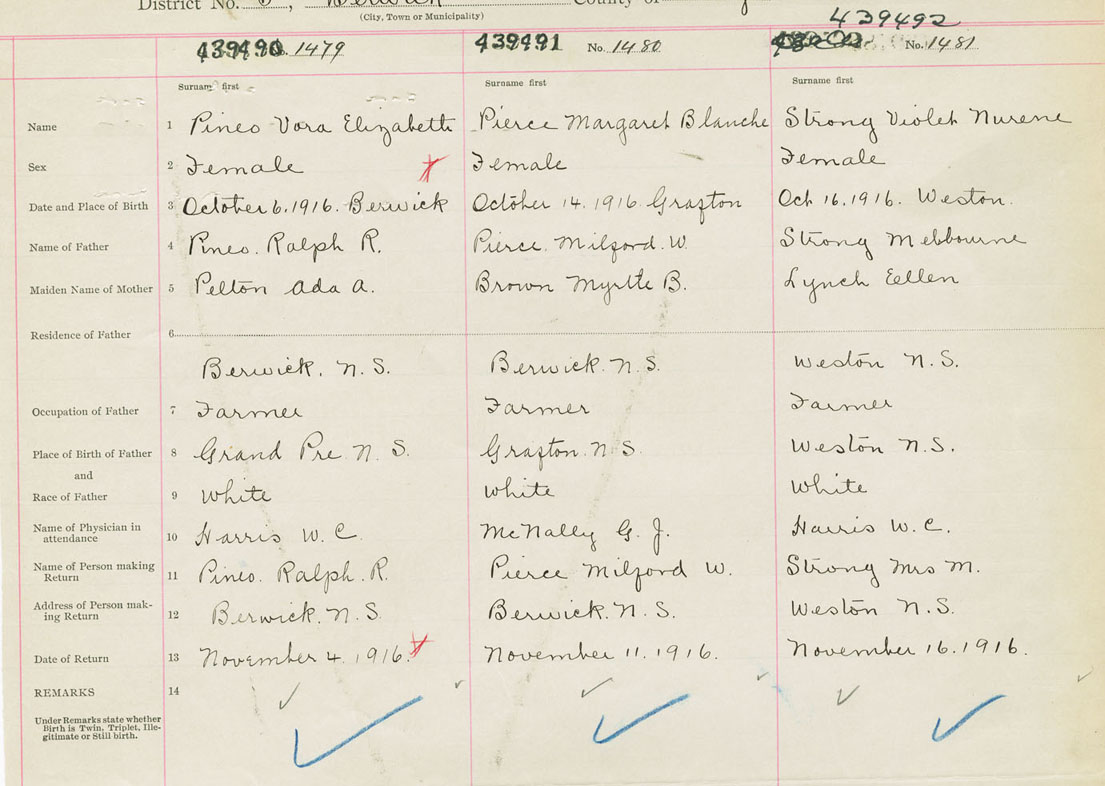 District No. Berwick County of
(City, Town or Municipality)
439492
439490 No. 1479 439491 No. 1480 No. 1481
Surname first Surname first Surname first
Name 1 Pineo Vora Elizabeth Pierce Margaret Blanche Strong Violet Nurene
Sex 2 Female Female Female
Date and Place of Birth 3 October 6. 1916. Berwick October 14. 1916 Grafton Oct 16. 1916. Weston.
Name of Father 4 Pineo. Ralph R. Pierce. Milford. W. Strong Melbourne
Maiden Name of Mother 5 Pelton Ada A. Brown Myrtle B. Lynch Eellen
Residence of Father 6
Berwick. N.S. Berwick. N.S. Weston N.S.
Occupation of Father 7 Farmer Farmer Farmer
Place of Birth of Father 8 Grand Pre N.S. Grafton. N.S. Weston N.S.
and
Race of Father 9 White White White
Name of Physician in
attendance 10 Harris W. C. McNally G. J. Harris W. C.
Name of Person making
Return 11 Pineo. Ralph. R. Pierce Milford W. Strong Mrs M.
Address of Person mak-
ing Return 12 Berwick. N.S. Berwick. N.S. Weston N.S.
Date of Return 13 November 4. 1916. November 11. 1916. November 16. 1916.
REMARKS 14
Under Remarks state whether
Birth is Twin, Triplet, Ille-
gitimate or Still birth.